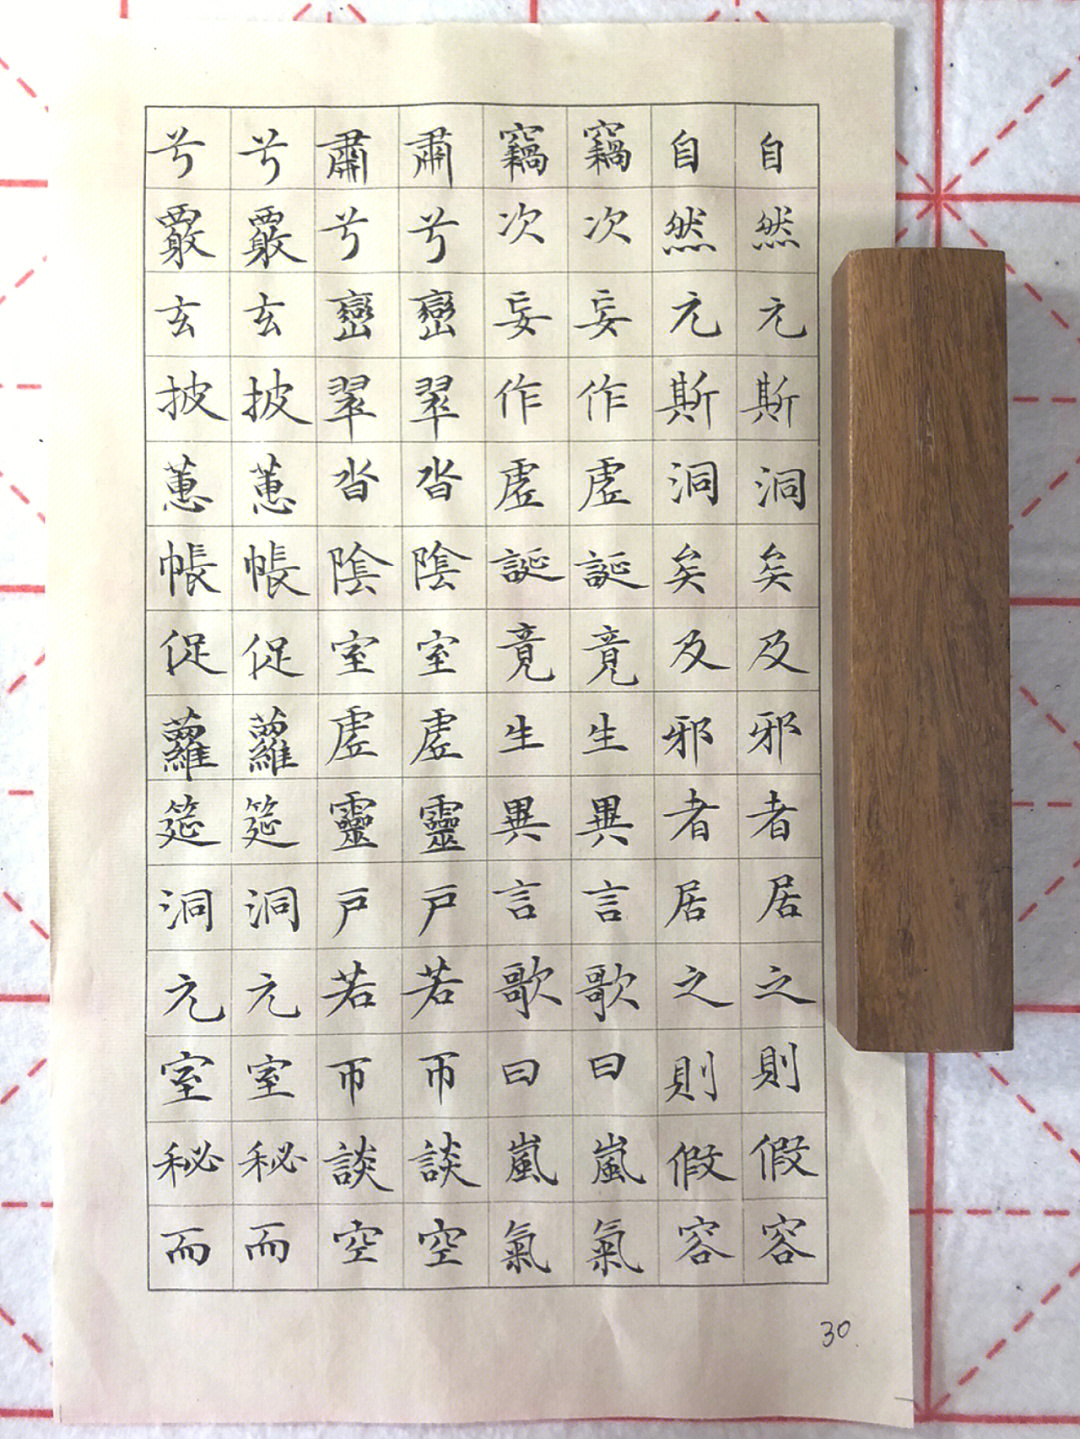 自然元斯洞矣及邪者居之則假容
自然元斯洞矣及邪者居之則假容
竊次妄作虛誕竟生異言歌曰嵐氣
竊次妄作虛誕竟生異言歌曰嵐氣
肅兮巒翠沓陰室虛靈戶若帀談空
肅兮巒翠沓陰室虛靈戶若帀談空
兮覈玄披蕙帳促蘿筵洞元室秘而
兮覈玄披蕙帳促蘿筵洞元室秘而
30